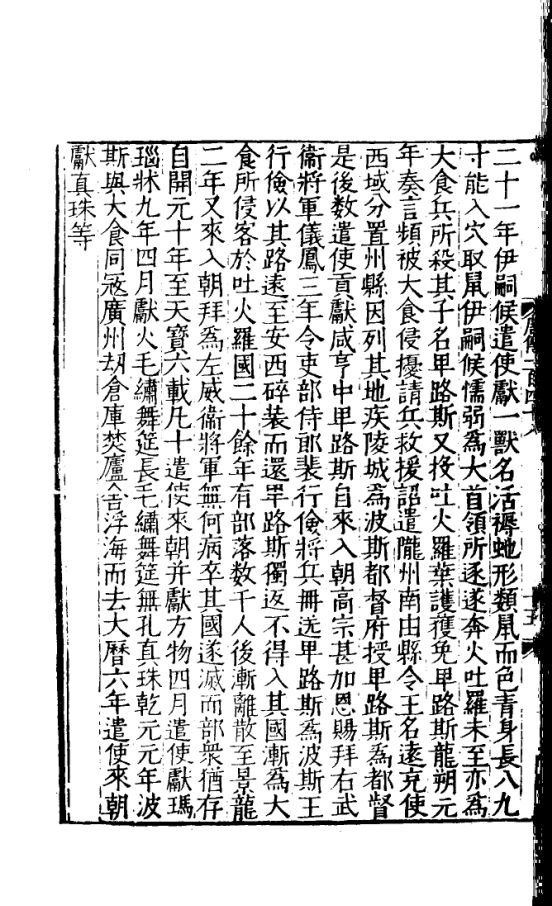 二十一年伊嗣候遣使獻一獸名活褥虵形類鼠而色青身長八九
寸能入穴取鼠伊嗣候懦弱為大首領所逐遂奔火吐羅未至亦為
大食兵所殺其子名卑路斯又投吐火羅葉護獲免卑路斯龍朔元
年奏言頻被大食侵擾請兵救援詔遣隴州南由縣令王名遠充使
西域分置州縣因列其地疾陵城為波斯都督府授卑路斯為都督
是後数遣使貢獻咸亨中卑路斯自來入朝高宗甚加恩賜拜右武
衞將軍儀鳳三年令吏部侍郎裴行儉將兵冊送卑路斯為波斯王
行儉以其路遠至安西碎葉而還卑路斯獨返不得入其國漸為大
食所侵客於吐火羅國二十餘年有部落数千人後漸離散至景龍
二年又來入朝拜為左威衞將軍無何病卒其國遂滅而部衆猶存
自開元十年至天寶六載凡十遣使來朝并獻方物四月遣使獻瑪
瑙牀九年四月獻火毛繡舞筵長毛繡舞筵無孔真珠乾元元年波
斯與大食同宼廣州刼倉庫焚廬舍浮海而去大曆六年遣使來朝
獻真珠等